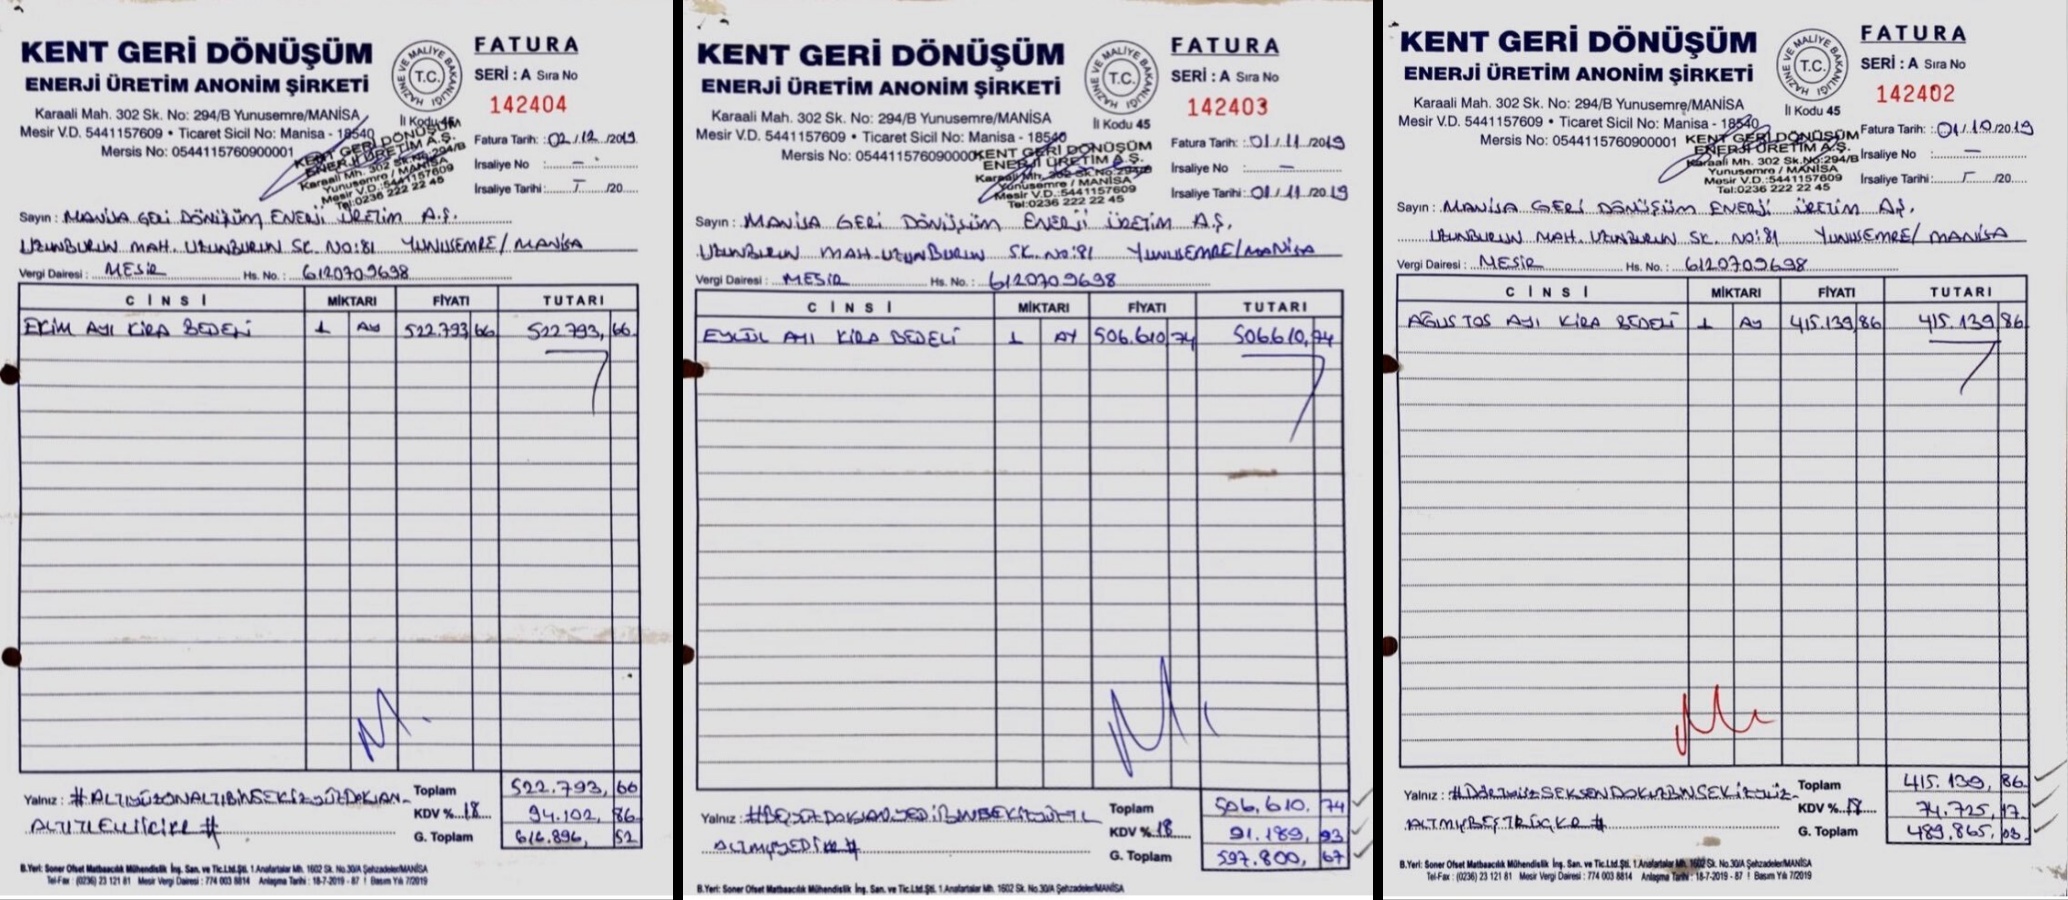 KENT GERİ DÖNÜŞÜM
ENERJİ ÜRETİM ANONİM ŞİRKETİ
Karaali Mah. 302 Sk. No: 294/B Yunusemre/MANİSA
Mesir V.D. 5441157609 • Ticaret Sicil No: Manisa - 18540
Mersis No: 0544115760900001
T.C. HAZİNE VE MALİYE BAKANLIĞI
İl Kodu 45
FATURA
SERİ : A Sıra No
142404
Fatura Tarih: 02/12/2019
İrsaliye No -
İrsaliye Tarihi: /20
KENT GERİ DÖNÜŞÜM
ENERJİ ÜRETİM A.Ş.
Karaali Mh. 302 Sk. No:294/B
Yunusemre / MANİSA
Mesir V.D.:5441157609
Tel:0236 222 22 45
Sayın : MANİSA GERİ DÖNÜŞÜM ENERJİ ÜRETİM A.Ş.
UZUNBURUN MAH. UZUNBURUN SK. NO:81 YUNUSEMRE/MANİSA
Vergi Dairesi : MESİR Hs. No. : 6120709698
CİNSİ MİKTARI FİYATI TUTARI
EKİM AYI KİRA BEDELİ 1 AY 522.793,66 522.793,66
Toplam 522.793,66
KDV %18 94.102,86
G. Toplam 616.896,52
Yalnız : #ALTIYÜZONALTIBİNSEKİZYÜZDOKSAN
ALTITLELLİİKİKR #
B.Yeri: Soner Ofset Matbaacılık Mühendislik İnş. San. ve Tic.Ltd.Şti. 1.Anafartalar Mh. 1602 Sk. No.30/A Şehzadeler/MANİSA
Tel-Fax : (0236) 23 121 81 Mesir Vergi Dairesi : 774 003 8814 Anlaşma Tarihi : 18-7-2019 - 87 ! Basım Yılı 7/2019
KENT GERİ DÖNÜŞÜM
ENERJİ ÜRETİM ANONİM ŞİRKETİ
Karaali Mah. 302 Sk. No: 294/B Yunusemre/MANİSA
Mesir V.D. 5441157609 • Ticaret Sicil No: Manisa - 18540
Mersis No: 0544115760900001
T.C. HAZİNE VE MALİYE BAKANLIĞI
İl Kodu 45
FATURA
SERİ : A Sıra No
142403
Fatura Tarih: 01/11/2019
İrsaliye No -
İrsaliye Tarihi: 01/11/2019
KENT GERİ DÖNÜŞÜM
ENERJİ ÜRETİM A.Ş.
Karaali Mh. 302 Sk. No:294/B
Yunusemre / MANİSA
Mesir V.D.:5441157609
Tel:0236 222 22 45
Sayın : MANİSA GERİ DÖNÜŞÜM ENERJİ ÜRETİM A.Ş.
UZUNBURUN MAH. UZUNBURUN SK. NO:81 YUNUSEMRE/MANİSA
Vergi Dairesi : MESİR Hs. No. : 6120709698
CİNSİ MİKTARI FİYATI TUTARI
EYLÜL AYI KİRA BEDELİ 1 AY 506.610,74 506.610,74
Toplam 506.610,74
KDV %18 91.189,93
G. Toplam 597.800,67
ALTMIŞYEDİKR #
B.Yeri: Soner Ofset Matbaacılık Mühendislik İnş. San. ve Tic.Ltd.Şti. 1.Anafartalar Mh. 1602 Sk. No.30/A Şehzadeler/MANİSA
KENT GERİ DÖNÜŞÜM
ENERJİ ÜRETİM ANONİM ŞİRKETİ
Karaali Mah. 302 Sk. No: 294/B Yunusemre/MANİSA
Mesir V.D. 5441157609 • Ticaret Sicil No: Manisa - 18540
Mersis No: 0544115760900001
T.C. HAZİNE VE MALİYE BAKANLIĞI
İl Kodu 45
FATURA
SERİ : A Sıra No
142402
Fatura Tarih: 01/10/2019
İrsaliye No -
İrsaliye Tarihi: /20
KENT GERİ DÖNÜŞÜM
ENERJİ ÜRETİM A.Ş.
Karaali Mh. 302 Sk.No:294/B
Yunusemre / MANİSA
Mesir V.D.:5441157609
Tel:0236 222 22 45
Sayın : MANİSA GERİ DÖNÜŞÜM ENERJİ ÜRETİM A.Ş.
UZUNBURUN MAH. UZUNBURUN SK. NO:81 YUNUSEMRE/MANİSA
Vergi Dairesi : MESİR Hs. No. : 6120709698
CİNSİ MİKTARI FİYATI TUTARI
AĞUSTOS AYI KİRA BEDELİ 1 AY 415.139,86 415.139,86
Toplam 415.139,86
KDV %18 74.725,17
G. Toplam 489.865,03
Yalnız : #DÖRTYÜZSEKSENDOKUZBİNSEKİZYÜZ
ALTMIŞBEŞTLÜÇKR #
B.Yeri: Soner Ofset Matbaacılık Mühendislik İnş. San. ve Tic.Ltd.Şti. 1.Anafartalar Mh. 1602 Sk. No.30/A Şehzadeler/MANİSA
Tel-Fax : (0236) 23 121 81 Mesir Vergi Dairesi : 774 003 8814 Anlaşma Tarihi : 18-7-2019 - 87 ! Basım Yılı 7/2019